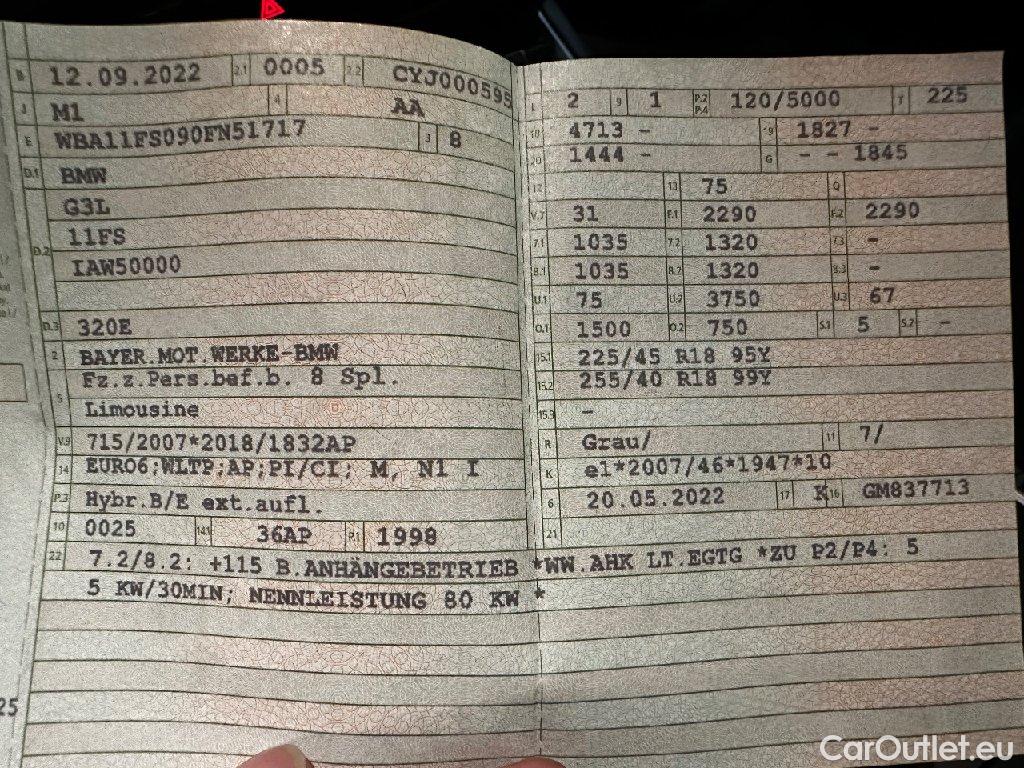 B 12.09.2022 2.1 0005 2.2 CYJ000595
J M1 4 AA
E WBA11FS090FN51717 3 8
D.1 BMW
G3L
D.2 11FS
IAW50000
D.3 320E
2 BAYER.MOT.WERKE-BMW
Fz.z.Pers.bef.b. 8 Spl.
5 Limousine
V.9 715/2007*2018/1832AP
14 EURO6;WLTP;AP;PI/CI; M, N1 I
P.3 Hybr.B/E ext.aufl.
10 0025 14.1 36AP P.1 1998
L 2 9 1 P.2 P.4 120/5000 T 225
18 4713 - 19 1827 -
20 1444 - G - - 1845
12 13 75 Q
V.7 31 F.1 2290 F.2 2290
7.1 1035 7.2 1320 7.3 -
8.1 1035 8.2 1320 8.3 -
U.1 75 U.2 3750 U.3 67
O.1 1500 O.2 750 S.1 5 S.2 -
15.1 225/45 R18 95Y
15.2 255/40 R18 99Y
15.3 -
R Grau/ 11 7/
K e1*2007/46*1947*10
6 20.05.2022 17 K 16 GM837713
21
22 7.2/8.2: +115 B.ANHÄNGEBETRIEB *WW.AHK LT.EGTG *ZU P2/P4: 5
5 KW/30MIN; NENNLEISTUNG 80 KW *
25
CarOutlet.eu